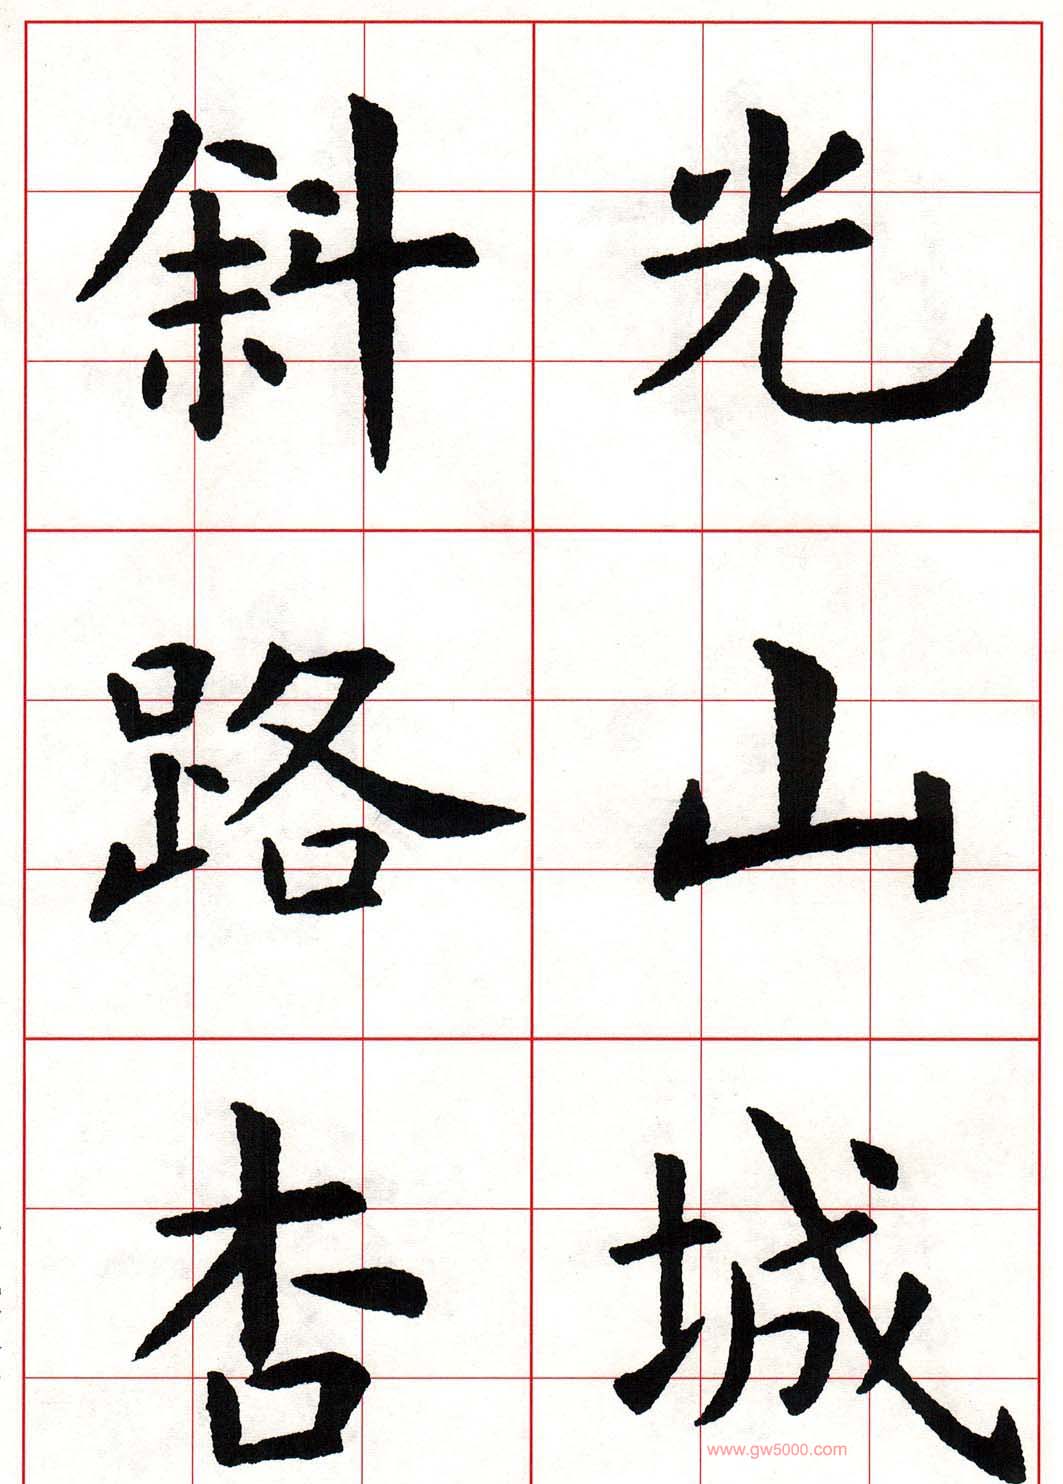 光山城
斜路杏
www.gw5000.com